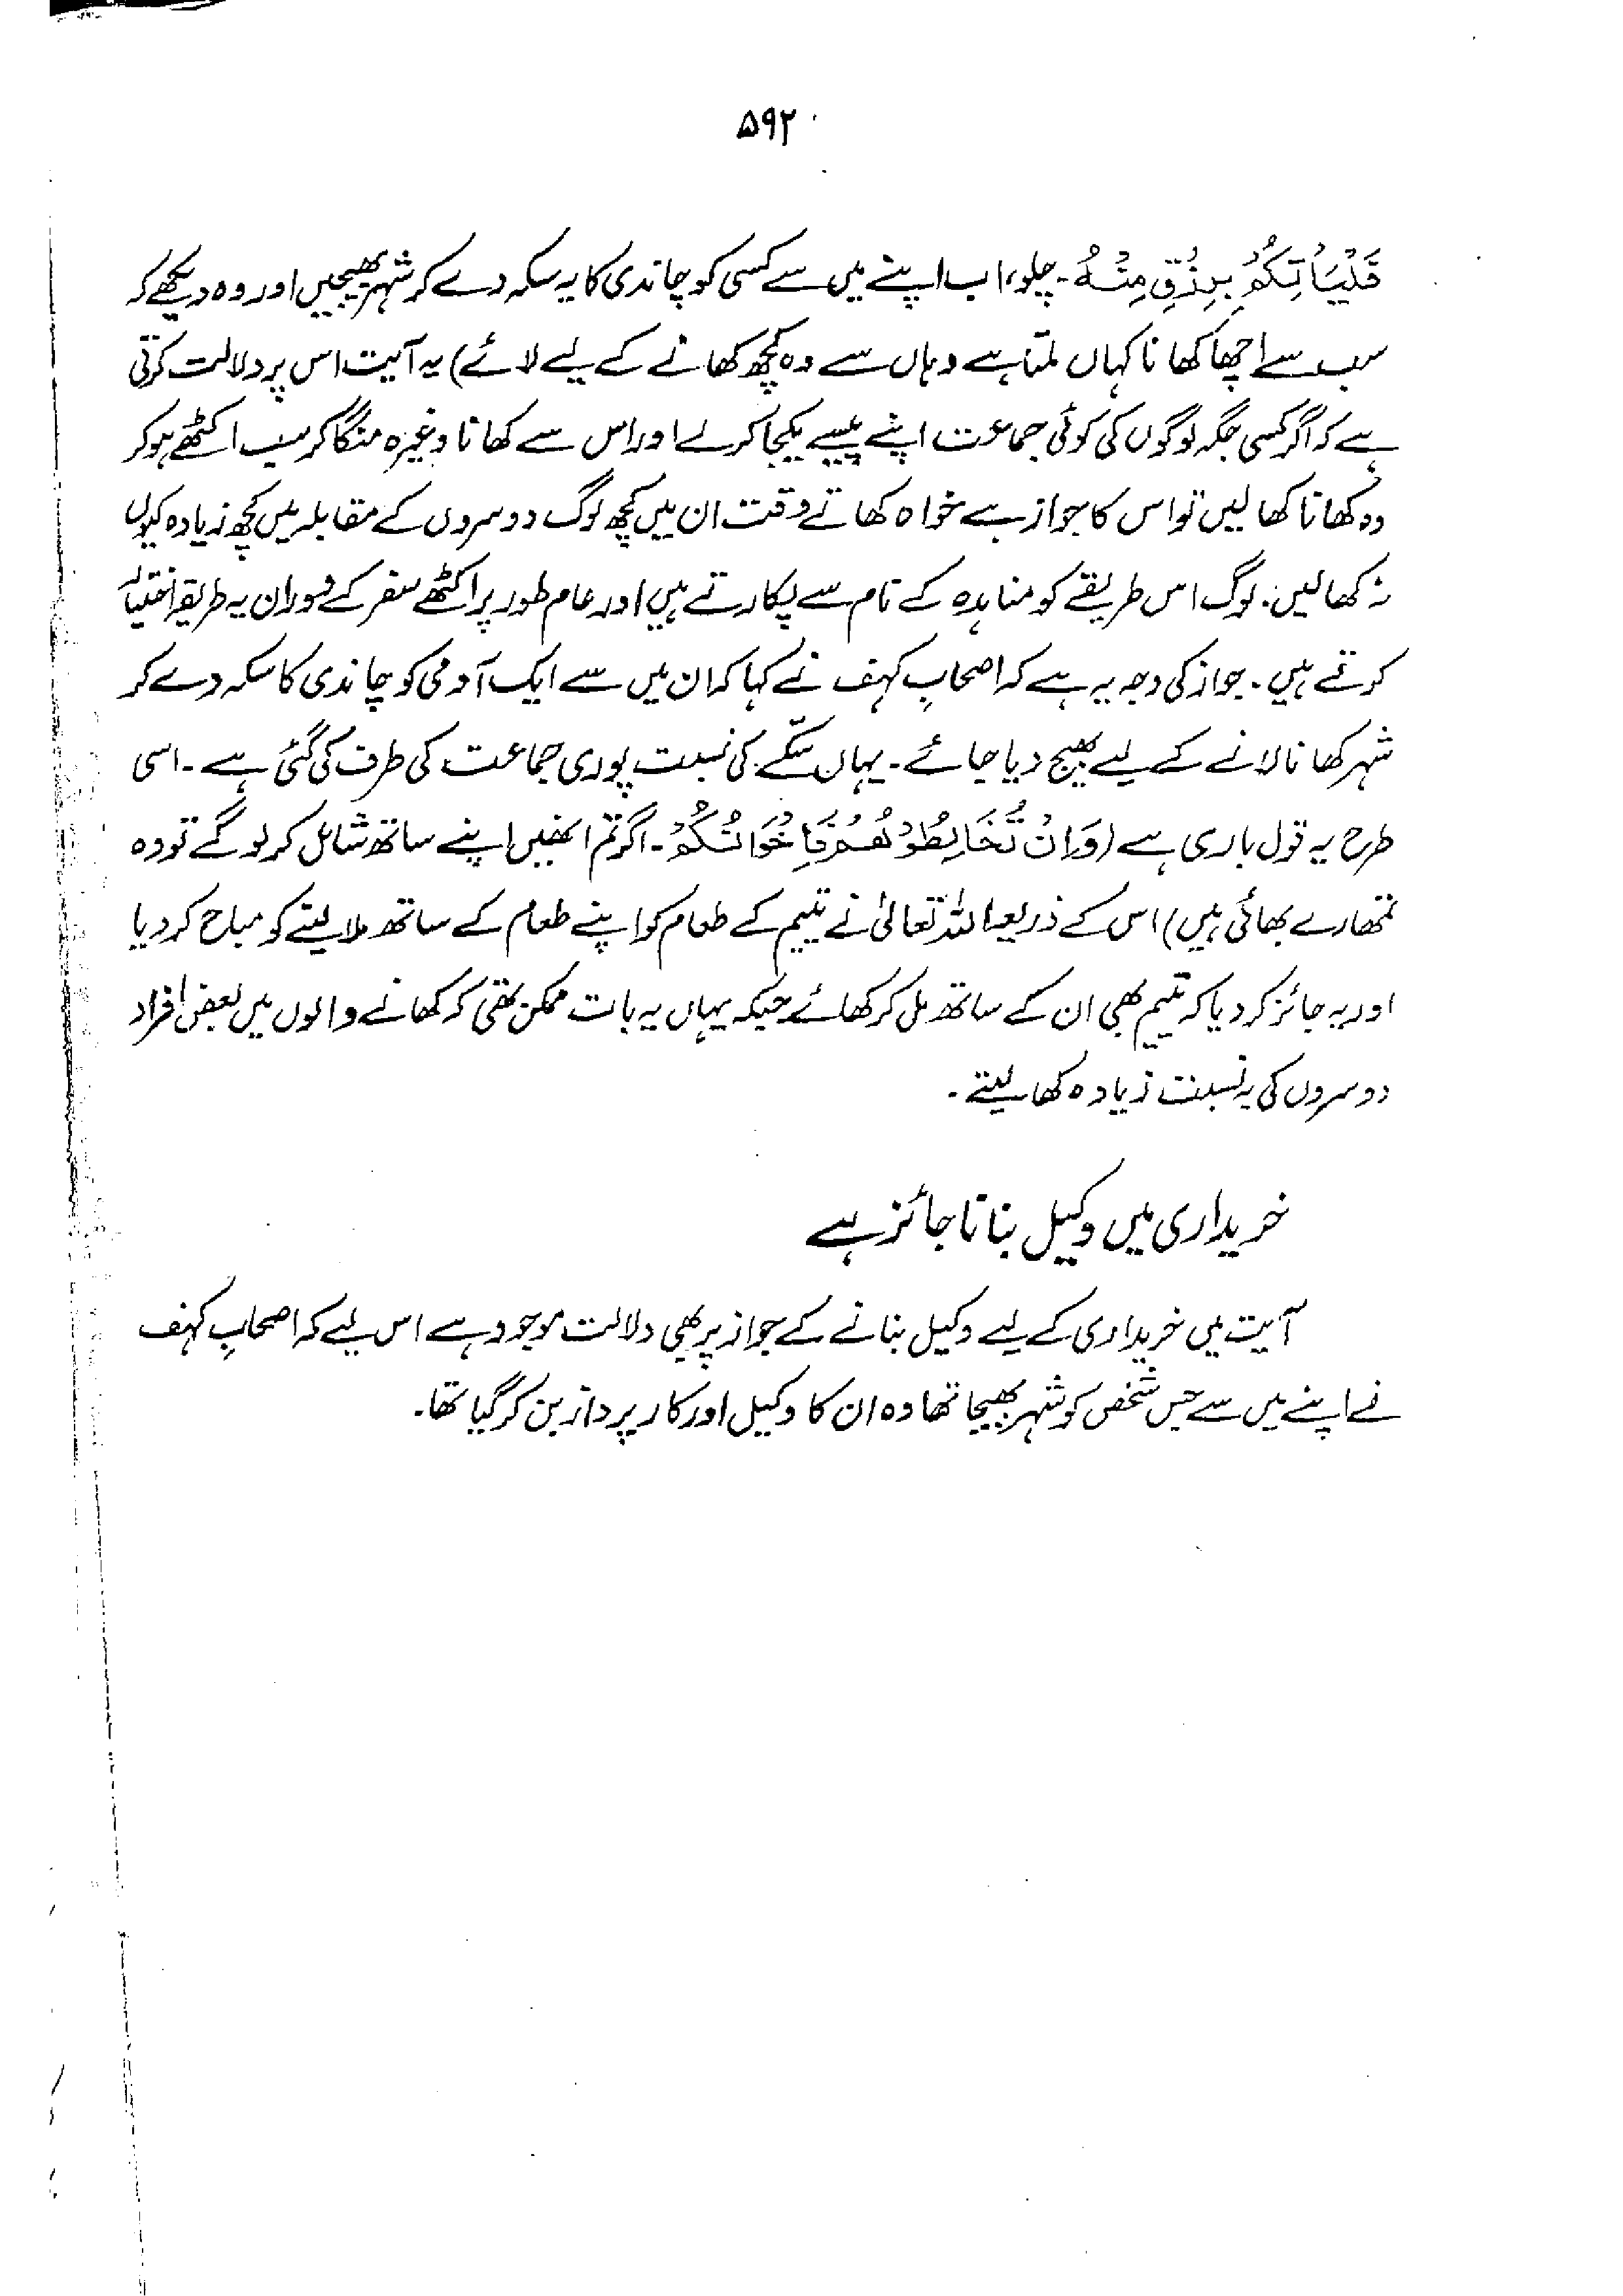 ۵۹۲
فَلْيَأْتِكُمْ بِرِزْقٍ مِنْهُ۔ چلو، اب اپنے میں سے کسی کو چاندی کا یہ سکہ دے کر شہر بھیجیں اور وہ دیکھے کہ
سب سے اچھا کھانا کہاں ملتا ہے وہاں سے وہ کچھ کھانے کے لیے لائے) یہ آیت اس پر دلالت کرتی
ہے کہ اگر کسی جگہ لوگوں کی کوئی جماعت اپنے پیسے یکجا کرلے اور اس سے کھانا وغیرہ منگا کر سب اکٹھے ہو کر
وہ کھانا کھا لیں تو اس کا جواز ہے خواہ کھاتے وقت ان میں کچھ لوگ دوسروں کے مقابلہ میں کچھ زیادہ کیوں
نہ کھالیں۔ لوگ اس طریقے کو مناہدہ کے نام سے پکارتے ہیں اور عام طور پر اکٹھے سفر کے دوران یہ طریقہ اختیار
کرتے ہیں۔ جواز کی وجہ یہ ہے کہ اصحابِ کہف نے کہا کہ ان میں سے ایک آدمی کو چاندی کا سکہ دے کر
شہر کھانا لانے کے لیے بھیج دیا جائے۔ یہاں سکّے کی نسبت پوری جماعت کی طرف کی گئی ہے۔ اسی
طرح یہ قول باری ہے (وَاِنْ تُخَالِطُوْهُمْ فَاِخْوَانُكُمْ۔ اگر تم انھیں اپنے ساتھ شامل کر لو گے تو وہ
تمھارے بھائی ہیں) اس کے ذریعہ اللہ تعالیٰ نے یتیم کے طعام کو اپنے طعام کے ساتھ ملا لیتے کو مباح کر دیا
اور یہ جائز کر دیا کہ یتیم بھی ان کے ساتھ مل کر کھائے جبکہ یہاں یہ بات ممکن تھی کہ کھانے والوں میں بعض افراد
دوسروں کی بہ نسبت زیادہ کھا لیتے۔
خریداری میں وکیل بنانا جائز ہے
آیت میں خریداری کے لیے وکیل بنانے کے جواز پر بھی دلالت موجود ہے اس لیے کہ اصحابِ کہف
نے اپنے میں سے جس شخص کو شہر بھیجا تھا وہ ان کا وکیل اور کار پرداز بن کر گیا تھا۔